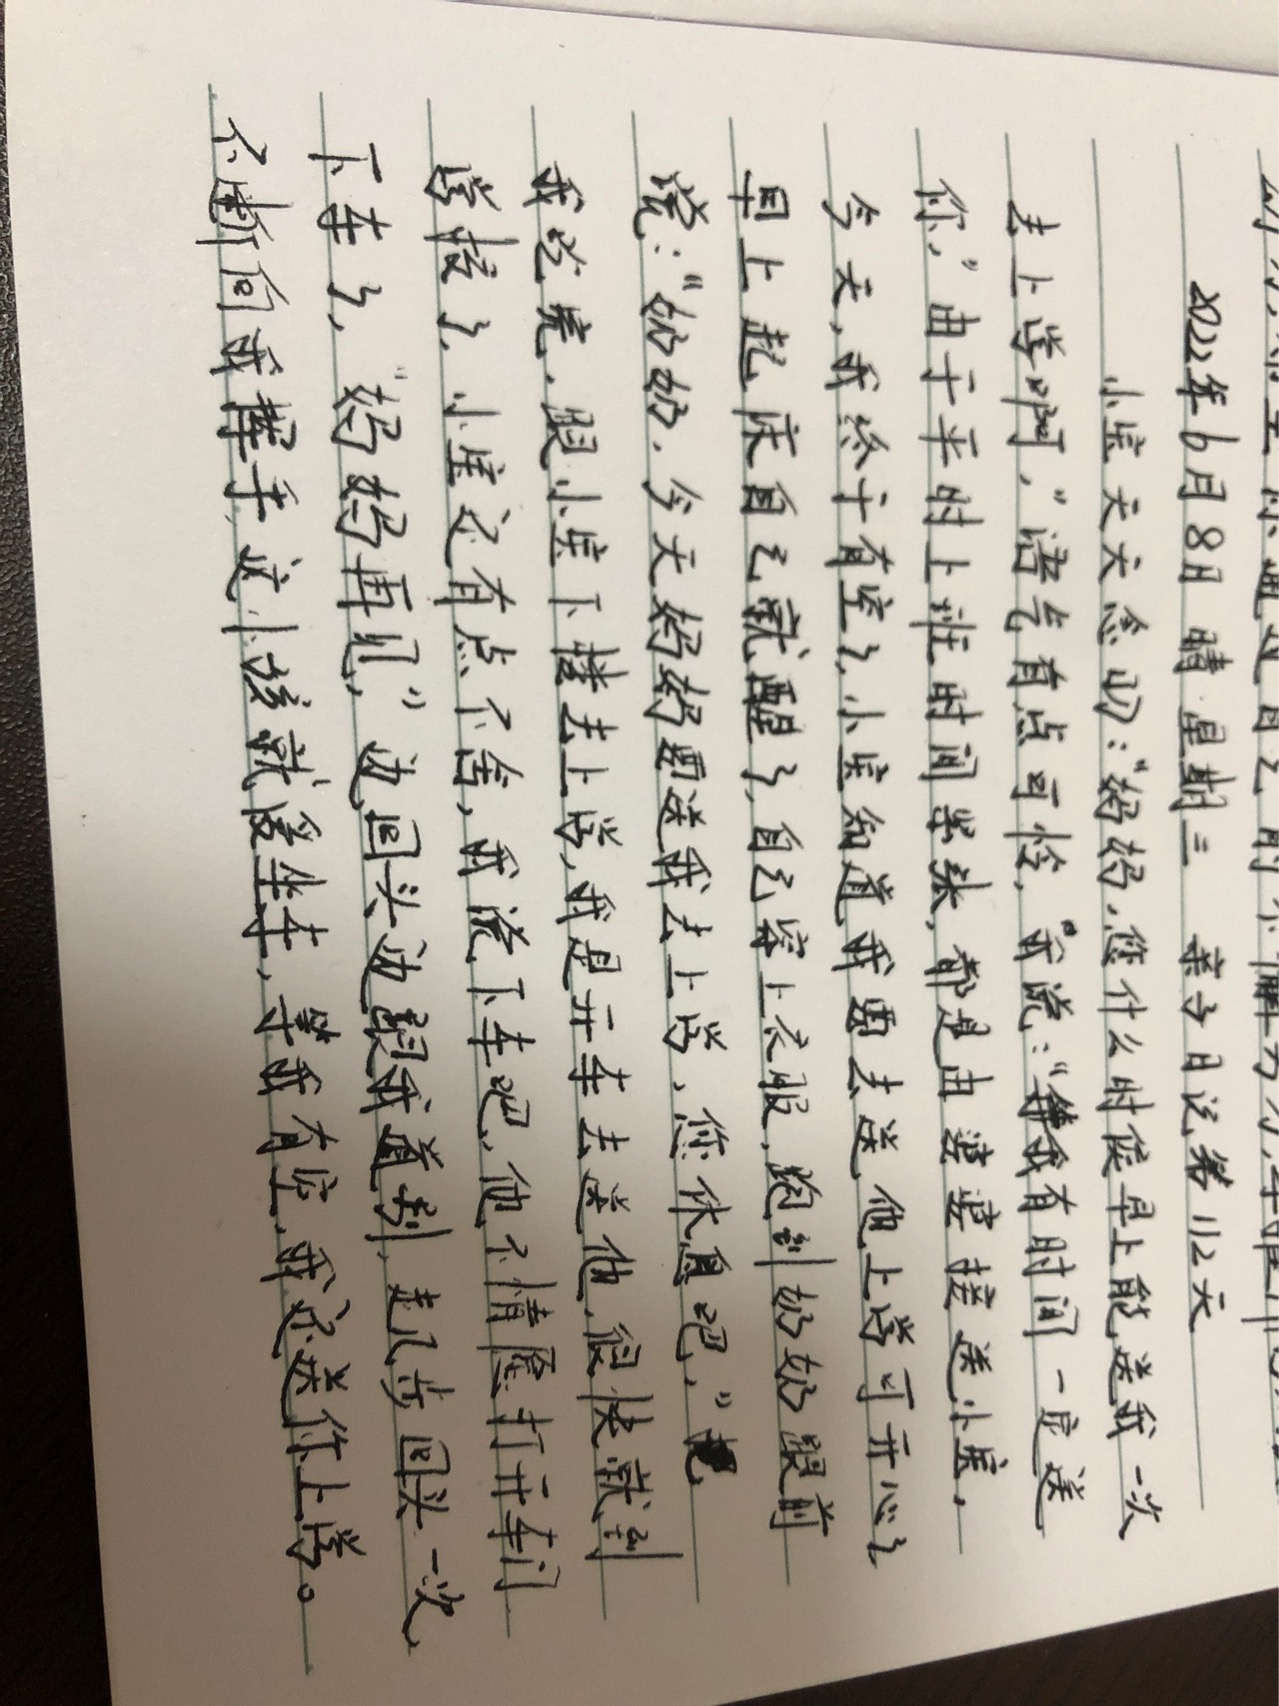 2022年6月8日 晴 星期三 亲子日记第112天
小宝天天念叨:“妈妈,您什么时候早上能送我一次
去上学啊,”语气有点可怜,我说:“等我有时间一定送
你,”由于平时上班时间紧张,都是由婆婆接送小宝,
今天,我终于有空了,小宝知道我要去送他上学可开心了
早上起床自己就醒了,自己穿上衣服,跑到奶奶跟前
说:“奶奶,今天妈妈要送我去上学,您休息吧,”
我吃完,跟小宝下楼去上学,我是开车去送他,很快就到
学校了,小宝还有点不舍,我说下车吧,他不情愿打开车门
下车了,“妈妈再见”边回头边跟我道别,走几步回头一次,
不断向我挥手,这小孩就爱坐车,等我有空,我还送你上学。